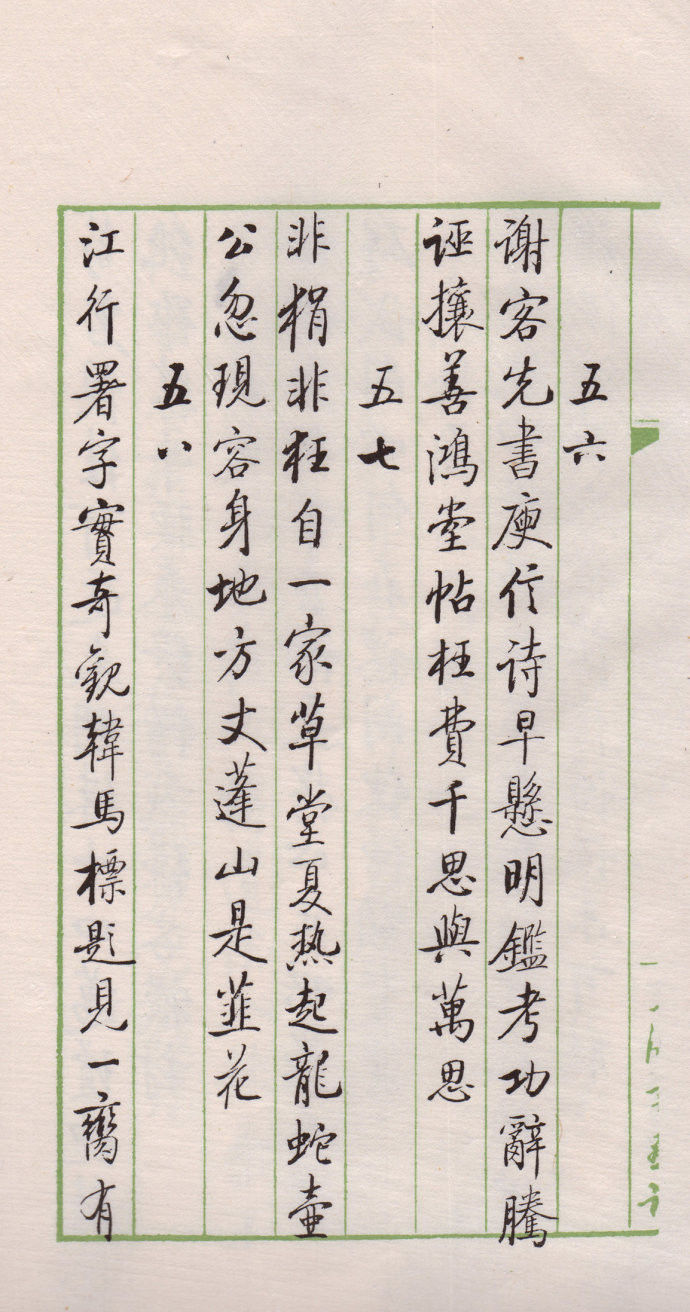 五六
谢客先書庾信诗早懸明鑑考功辭騰
誣攘善鴻堂帖枉費千思與萬思
五七
非狷非狂自一家草堂夏热起龍蛇壶
公忽現容身地方丈蓬山是韮花
五八
江行署字實奇觀韓馬標題見一脔有